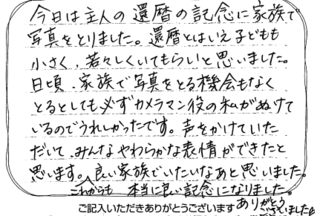 今日は主人の還暦の記念に家族で
写真をとりました。還暦とはいえ子どもも
小さく、若々しくいてもらいと思いました。
日頃、家族で写真をとる機会もなく
とるとしても必ずカメラマン役の私がぬけて
いるのでうれしかったです。声をかけていた
だいて、みんなやわらかな表情ができたと
思います。良い家族でいたいなあと思いました。
これからも 本当に良い記念になりました。
ご記入いただきありがとうございます ありがとう
ございました